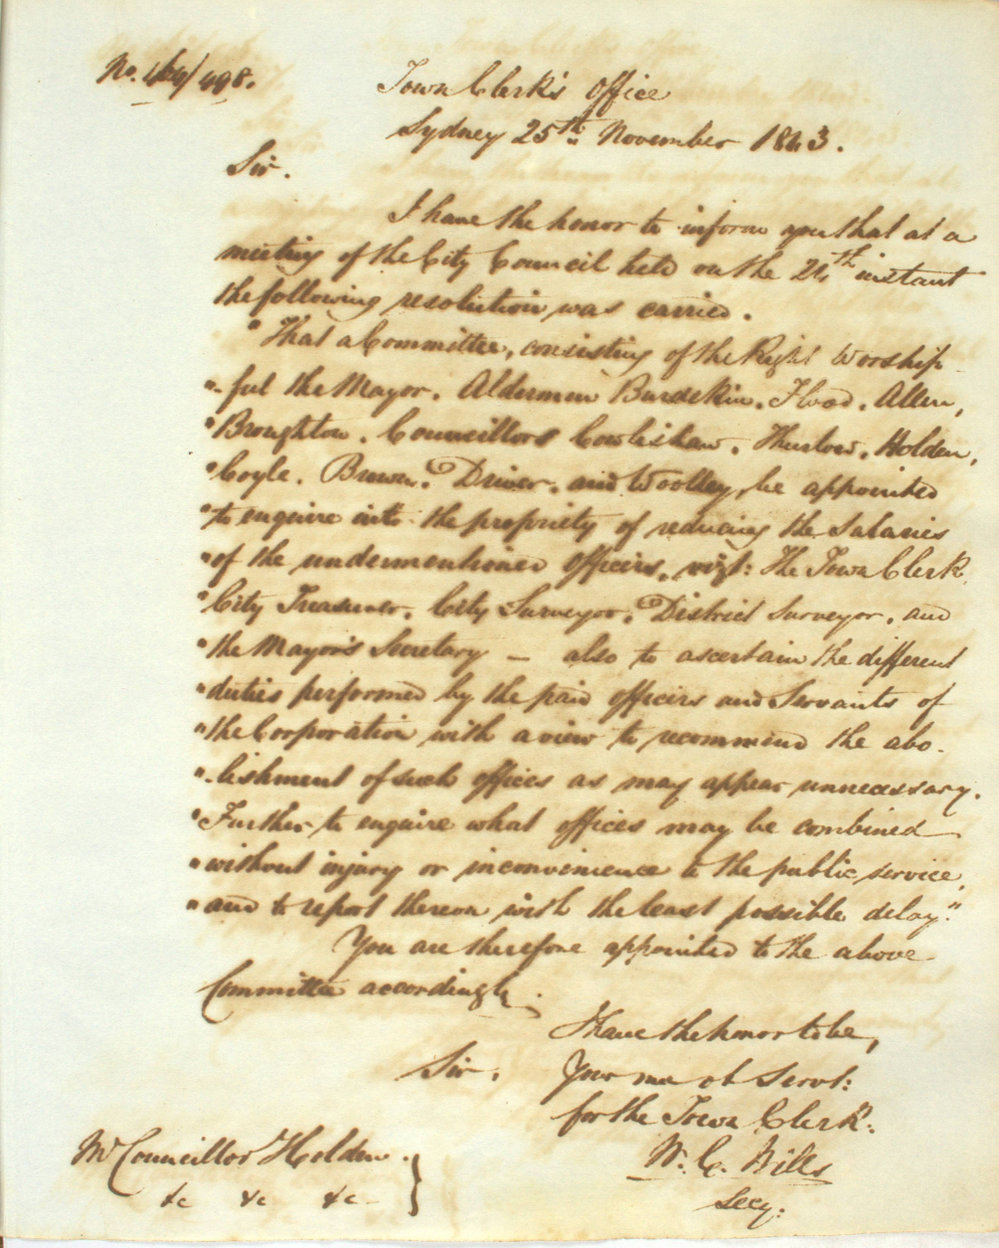 No. 498.
Town Clerk's Office
Sydney 25th November 1843.
Sir.
I have the honor to inform you that at a
meeting of the City Council held on the 24th instant
the following resolution was carried.
"That a Committee, consisting of the Right Worship
"-ful the Mayor. Aldermen Burdekin. Flood. Allen,
"Broughton. Councillors Cowlishaw. Thurlow. Holden,
"Coyle. Brown. Driver. and Woolley, be appointed
"to enquire into the propriety of reducing the Salaries
"of the undermentioned Officers, vizt: The Town Clerk,
"City Treasurer. City Surveyor. District Surveyor. and
"the Mayor's Secretary — also to ascertain the different
"duties performed by the paid officers and Servants of
"the Corporation with a view to recommend the abo-
"-lishment of such offices as may appear unnecessary.
"Further to enquire what offices may be combined
"without injury or inconvenience to the public service,
"and to report thereon with the least possible delay."
You are therefore appointed to the above
Committee accordingly.
I have the honor to be,
Sir.
Your mo ob Servt:
for the Town Clerk.
W. C. Wills
Secy:
Mr Councillor Holden.
&c &c &c